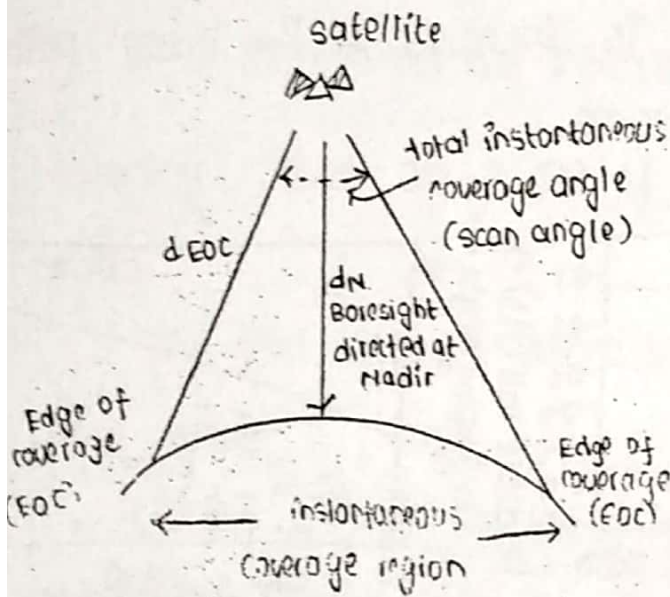 satellite
total instantaneous
coverage angle
(scan angle)
dEOC
dN
Boresight
directed at
Nadir
Edge of
coverage
(EOC)
Edge of
coverage
(EOC)
instantaneous
coverage region